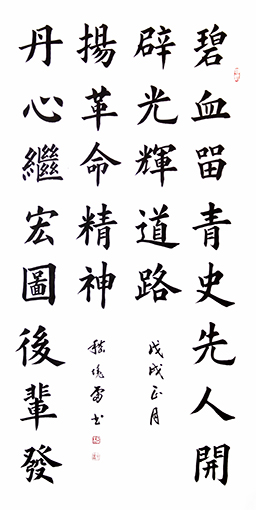 碧血留青史先人開
辟光輝道路
戊戌正月
丹心繼宏圖後輩發
揚革命精神